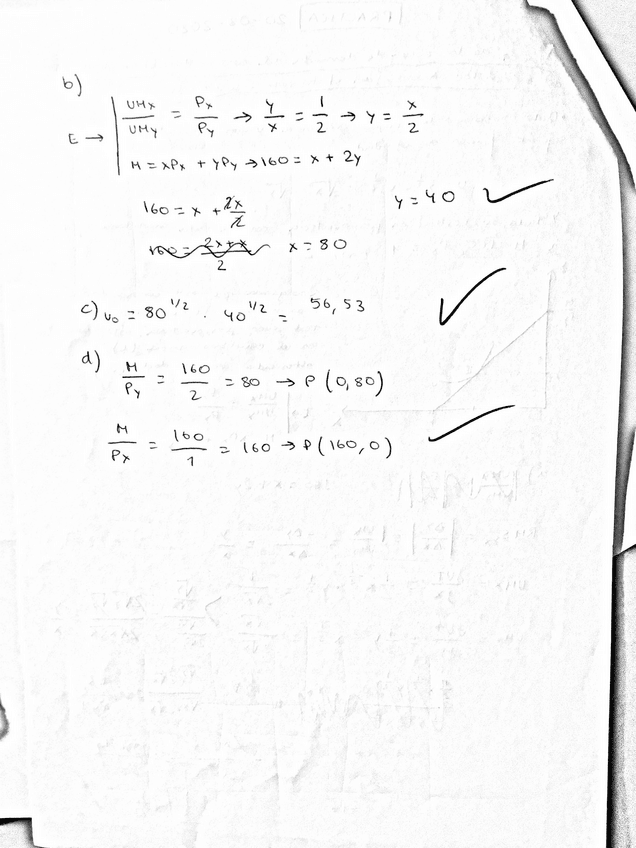 b)
E → UMx/UMy = Px/Py → y/x = 1/2 → y = x/2
M = xPx + yPy → 160 = x + 2y
160 = x + 2x/2
y = 40
160 = 2x+x/2
x = 80
c) U₀ = 80^1/2 · 40^1/2 = 56,53
d) M/Py = 160/2 = 80 → P (0,80)
M/Px = 160/1 = 160 → P (160,0)